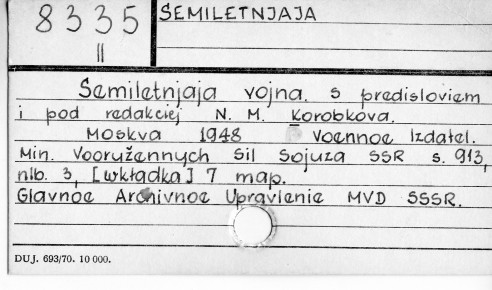 8335
II
SEMILETNJAJA
Semiletnjaja vojna. s predisloviem
i pod redakciej N. M. Korobkova.
Moskva 1948 Voennoe Izdatel.
Min. Vooružennych Sil Sojuza SSR s. 913,
nlb. 3, [wkładka] 7 map.
Glavnoe Archivnoe Upravlenie MVD SSSR.
DUJ. 693/70. 10 000.